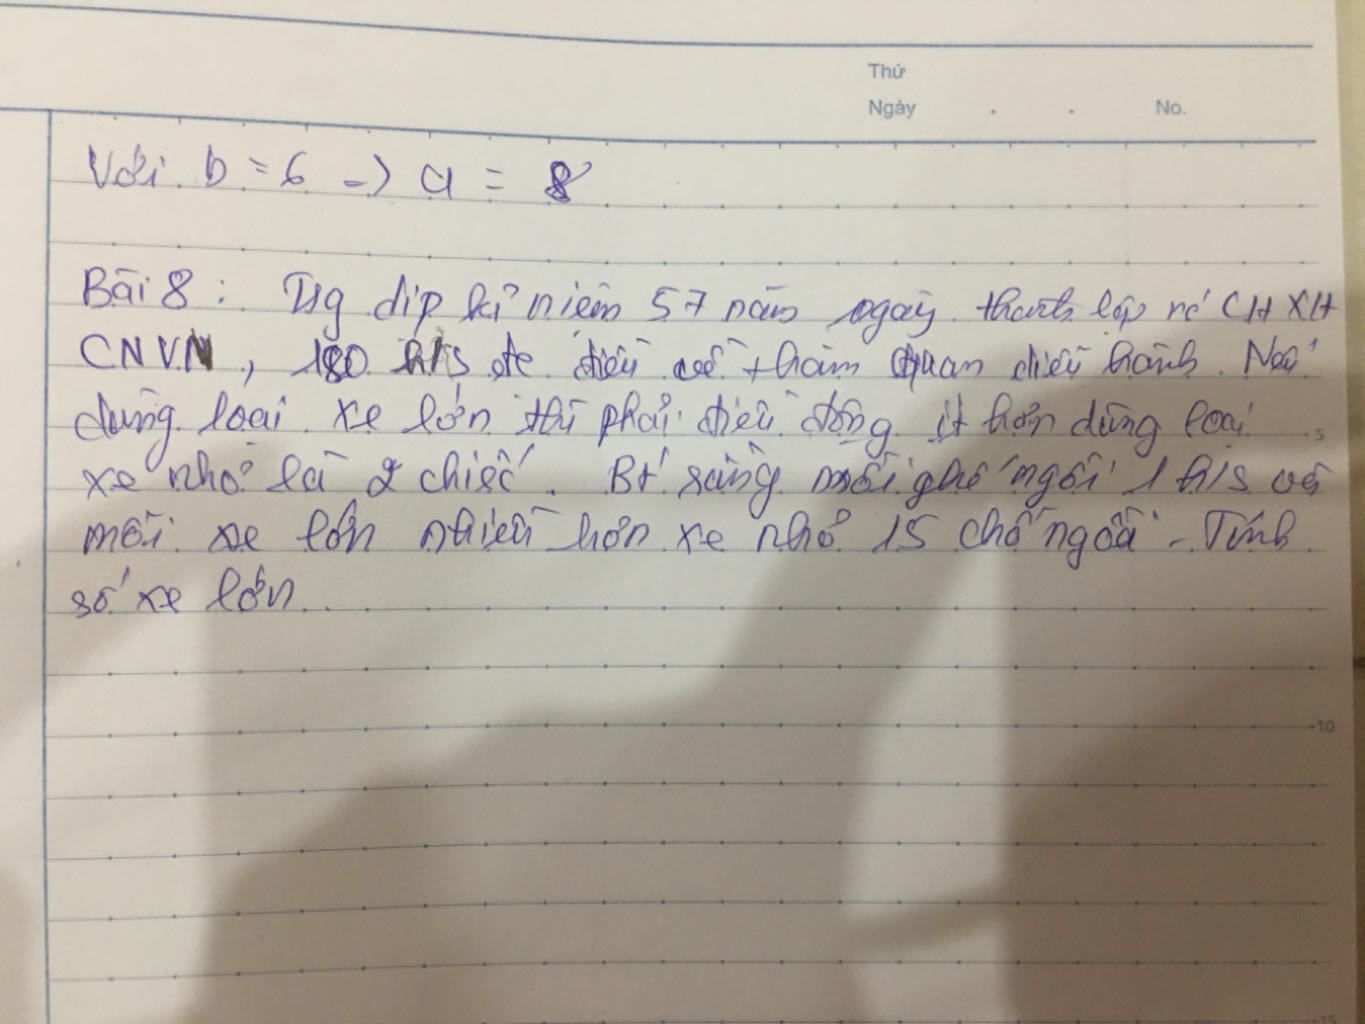 Thứ
Ngày . . No.
Với b = 6 -> a = 8
Bài 8 : dịp kỉ niệm 57 năm ngày thành lập CH XH
CNVN, 180 h/s đc điều về thăm quan diễu hành. Nếu
dùng loại xe lớn thì phải điều động ít hơn dùng loại
5
xe nhỏ là 2 chiếc. Bt rằng mỗi ghế ngồi 1 h/s và
mỗi xe lớn nhiều hơn xe nhỏ 15 chỗ ngồi - Tính
số xe lớn
10
15